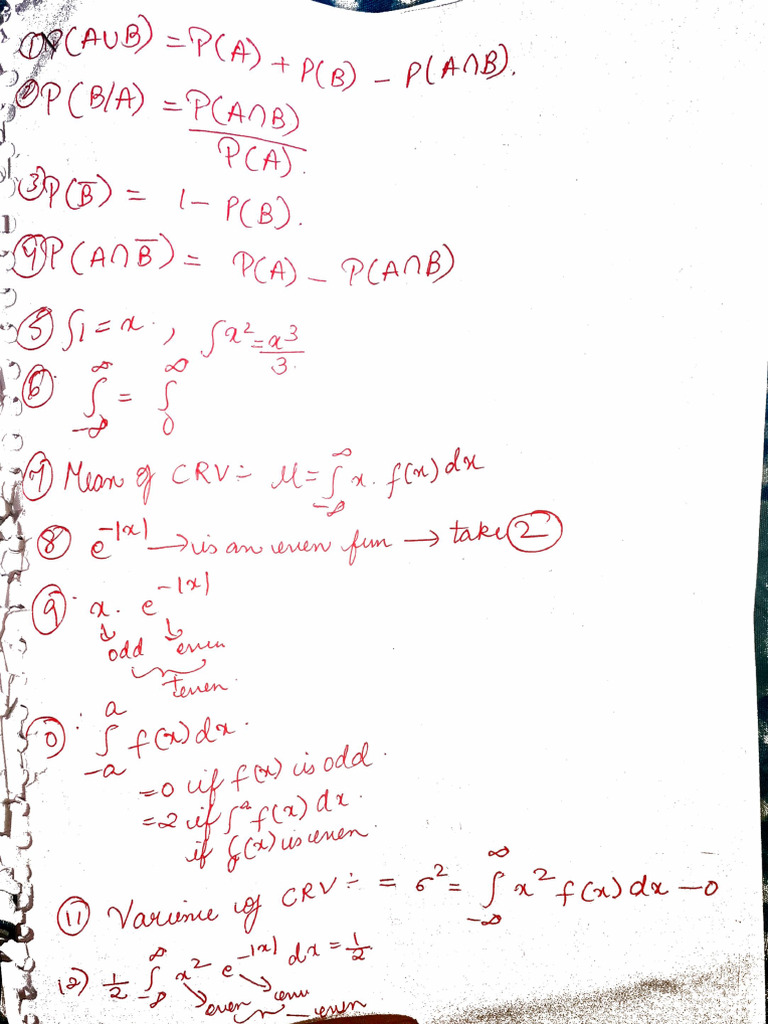 ① P(A∪B) = P(A) + P(B) - P(A∩B).
② P(B/A) = P(A∩B)
P(A).
③ P(B̅) = 1 - P(B).
④ P(A∩B̅) = P(A) - P(A∩B)
⑤ ∫1 = x. , ∫x² = x³
3.
⑥ ∞ ∞
∫ = ∫
-∞ 0
⑦ Mean of CRV ÷ μ = ∫_{-∞}^{∞} x. f(x) dx
⑧ e^{-|x|} → is an even fun → take ②
⑨ x. e^{-|x|}
↓ ↓
odd even
even
0 ∫_{-a}^{a} f(x) dx.
= 0 if f(x) is odd.
= 2 if ∫^{a} f(x) dx.
if f(x) is even.
⑪ Varience of CRV ÷ = σ² = ∫_{-∞}^{∞} x² f(x) dx - 0
12) 1/2 ∫_{-∞}^{∞} x² e^{-|x|} dx = 1/2
even even - even